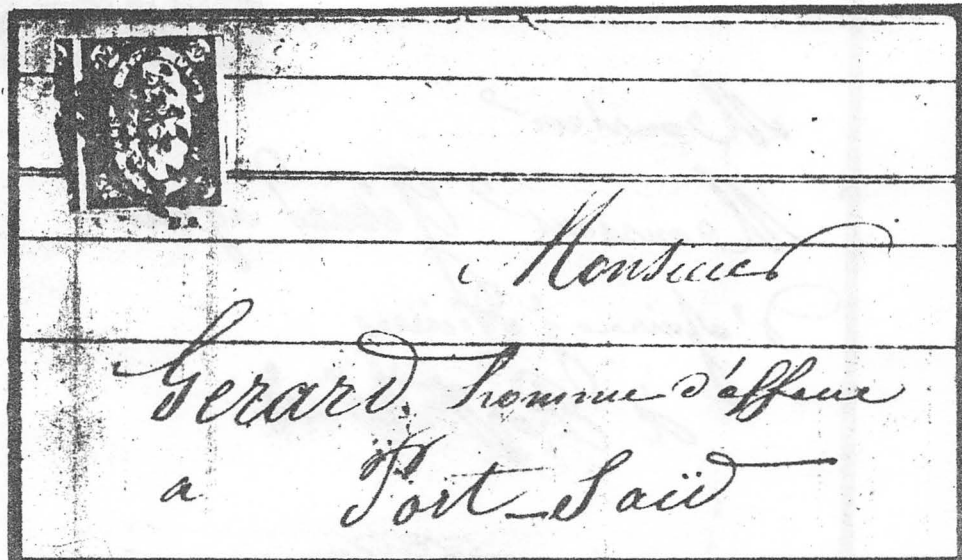 Monsieur
Gerard, homme d'affaire
a Port-Saïd